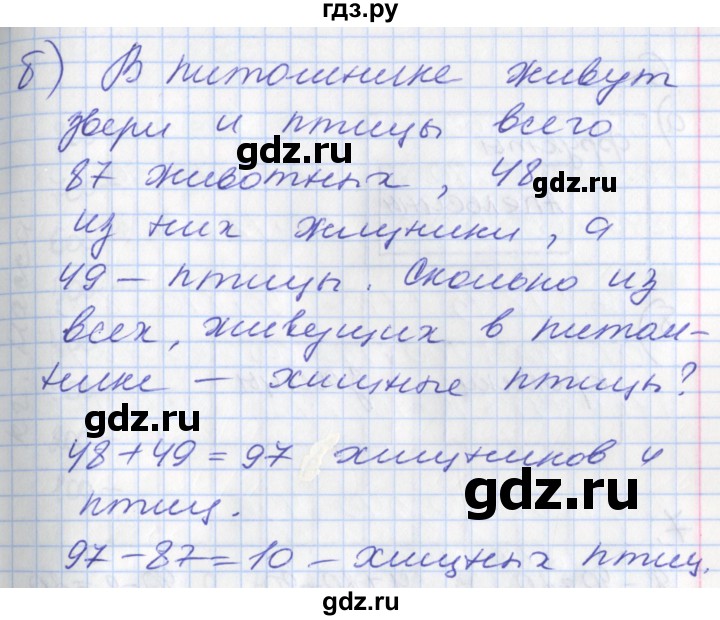 гдз.ру
б) В питомнике живут
звери и птицы всего
gdz.ru
87 животных, 48
gdz.ru
из них хищники, а
49 – птицы. Сколько из
всех, живущих в питом-
нике – хищные птицы?
gdz.ru
48+49=97 хищников и
птиц.
gdz.ru
97–87=10 – хищных птиц.
gdz.ru